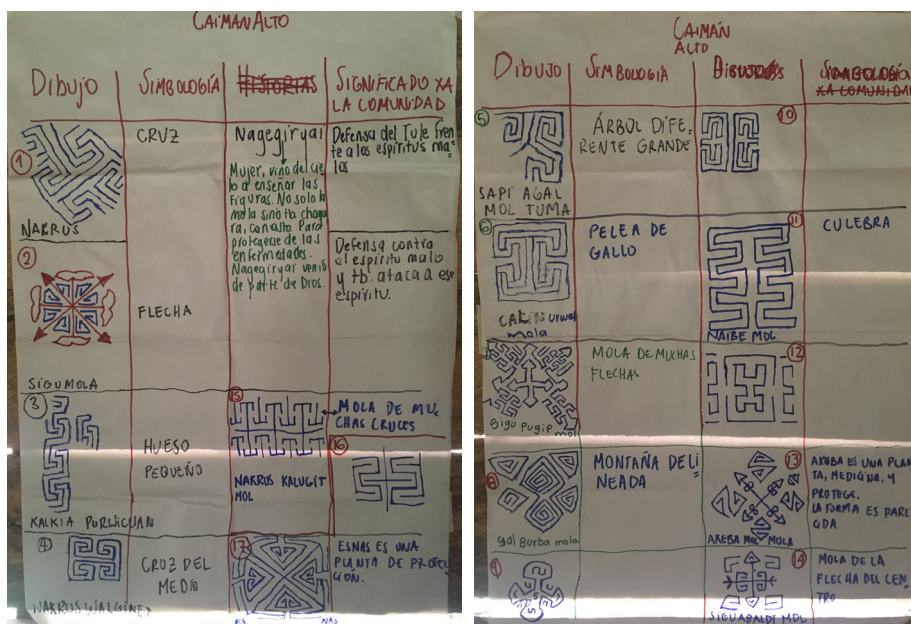 CAIMAN ALTO
DIBUJO
SIMBOLOGÍA
HISTORIAS
SIGNIFICADO XA
LA COMUNIDAD
1
NAKRUS
CRUZ
Nagegiryai
Mujer, vino del cie
lo a enseñar las
figuras. No solo la
mola sino tb chaqui
ra, canasto. Para
protegerse de las
enfermedades.
Nagegiryai venió
de parte de Dios.
Defensa del Tule fren
te a los espíritus ma=
los
2
SIGUMOLA
FLECHA
Defensa contra
el espíritu malo
y tb. ataca a ese
espíritu.
3
KALKIA PURWIGUAN
HUESO
PEQUEÑO
15
NAKRUS KALUGIT
MOL
MOLA DE MU
CHAS CRUCES
16
4
NAKRUS WALGINET
CRUZ DEL
MEDIO
17
ES NAS
ESNAS ES UNA
PLANTA DE PROTEC
CIÓN.
CAIMÁN
ALTO
DIBUJO
SIMBOLOGÍA
DIBUJOS
SIMBOLOGÍA
XA COMUNIDAD
5
SAPI AGAL
MOL TUMA
ÁRBOL DIFE
RENTE GRANDE
10
6
mola
PELEA DE
GALLO
11
NAIBE MOL
CULEBRA
Sigu Pugip mol
MOLA DE MUCHAS
FLECHAS
12
8
Yal Burba mola
MONTAÑA DELI
NEADA
13
AKEBA MOL MOLA
AKEBA ES UNA PLAN
TA, MEDICINA, Y
PROTEGE.
LA FORMA ES PARE
CIDA
9
14
SIGUABALDI MOL
MOLA DE LA
FLECHA DEL CEN
TRO